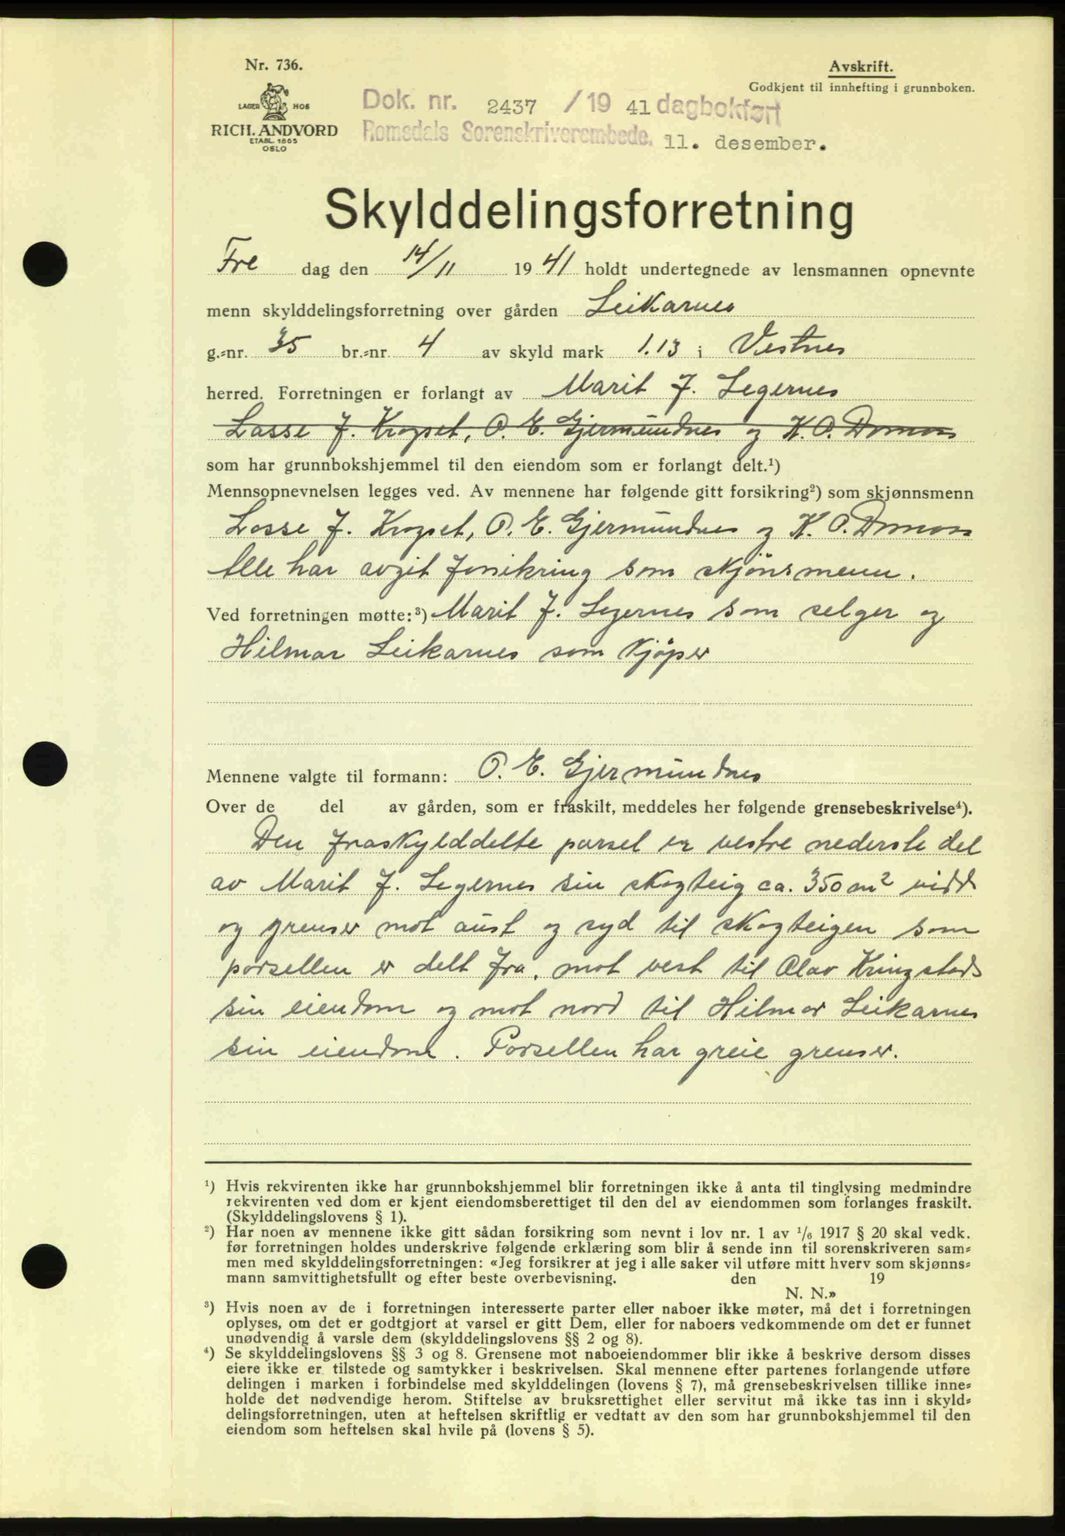 Nr. 736.
LAGER HOS
RICH. ANDVORD
ETABL. 1865
OSLO
Avskrift.
Godkjent til innhefting i grunnboken.
Dok. nr. 2437 / 19 41 dagbokført
Romsdals Sorenskriverembede. 11. desember.
Skylddelingsforretning
Fre dag den 14/11 19 41 holdt undertegnede av lensmannen opnevnte
menn skylddelingsforretning over gården Leikarnes
g.=nr. 35 br.=nr. 4 av skyld mark 1.13 i Vestnes
herred. Forretningen er forlangt av Marit J. Legernes
Lasse J. Krogset, O. E. Gjermundnes og K. O. Domaas
som har grunnbokshjemmel til den eiendom som er forlangt delt.¹)
Mennsopnevnelsen legges ved. Av mennene har følgende gitt forsikring²) som skjønnsmenn
Lasse J. Krogset, O. E. Gjermundnes og K. O. Domaas
Alle har avgit forsikring som skjönsmenn.
Ved forretningen møtte:³) Marit J. Legernes som selger og
Hilmar Leikarnes som kjöper
Mennene valgte til formann: O. E. Gjermundnes
Over de del av gården, som er fraskilt, meddeles her følgende grensebeskrivelse⁴).
Den fraskylddelte parsel er vestre nederste del
av Marit J. Legernes sin skogteig ca. 350 m² vidd
og grenser mot aust og syd til skogteigen som
parsellen er delt fra, mot vest til Olav Kringstads
sin eiendom og mot nord til Hilmar Leikarnes
sin eiendom. Parsellen har greie grenser.
¹) Hvis rekvirenten ikke har grunnbokshjemmel blir forretningen ikke å anta til tinglysing medmindre
rekvirenten ved dom er kjent eiendomsberettiget til den del av eiendommen som forlanges fraskilt.
(Skylddelingslovens § 1).
²) Har noen av mennene ikke gitt sådan forsikring som nevnt i lov nr. 1 av 1/6 1917 § 20 skal vedk.
før forretningen holdes underskrive følgende erklæring som blir å sende inn til sorenskriveren sam=
men med skylddelingsforretningen: «Jeg forsikrer at jeg i alle saker vil utføre mitt hverv som skjønns=
mann samvittighetsfullt og efter beste overbevisning. den 19
N. N.»
³) Hvis noen av de i forretningen interesserte parter eller naboer ikke møter, må det i forretningen
oplyses, om det er godtgjort at varsel er gitt Dem, eller for naboers vedkommende om det er funnet
unødvendig å varsle dem (skylddelingslovens §§ 2 og 8).
⁴) Se skylddelingslovens §§ 3 og 8. Grensene mot naboeiendommer blir ikke å beskrive dersom disses
eiere ikke er tilstede og samtykker i beskrivelsen. Skal mennene efter partenes forlangende utføre
delingen i marken i forbindelse med skylddelingen (lovens § 7), må grensebeskrivelsen tillike inne=
holde det nødvendige herom. Stiftelse av bruksrettighet eller servitut må ikke tas inn i skyld=
delingsforretningen, uten at heftelsen skriftlig er vedtatt av den som har grunnbokshjemmel til den
eiendom som heftelsen skal hvile på (lovens § 5).